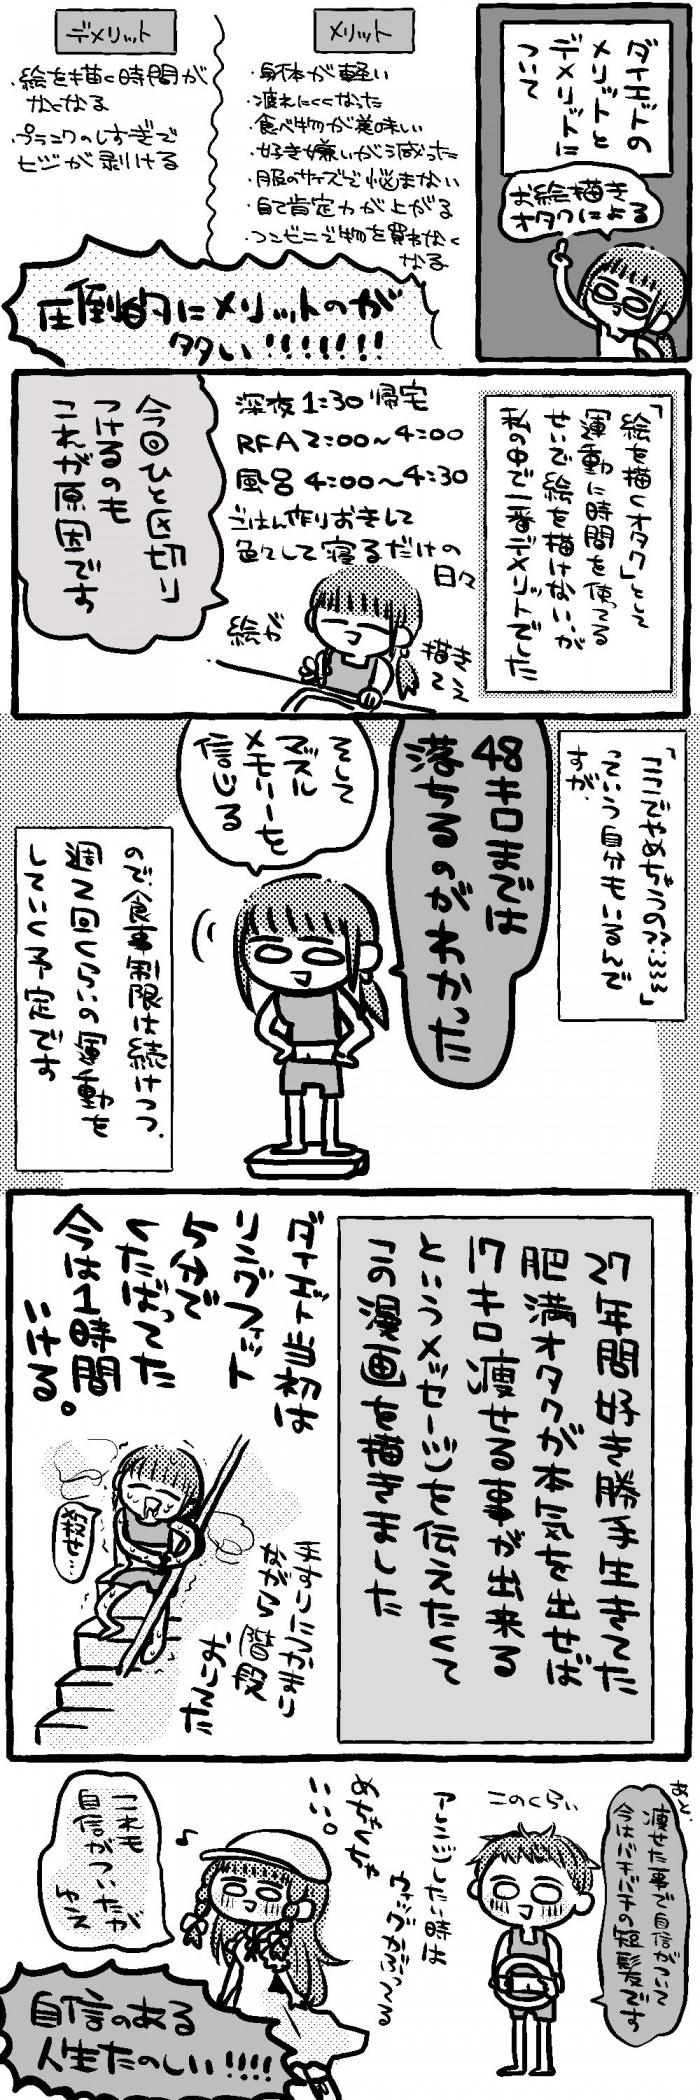 ダイエットの
メリットと
デメリットに
ついて
お絵描き
オタクによる
メリット
・身体が軽い
・疲れにくくなった
・食べ物が美味しい
・好き嫌いが減った
・服のサイズで悩まない
・自己肯定力が上がる
・コンビニで物を買わなく
なる
デメリット
・絵を描く時間が
なくなる
・プランクのしすぎで
ヒジが剥ける
圧倒的にメリットのが
多い!!!!!!!
「絵を描くオタク」として
運動に時間を使ってる
せいで絵を描けない、が
私の中で一番デメリットでした
深夜1:30帰宅
RFA2:00〜4:00
風呂4:00〜4:30
ごはん作りおきして
色々して寝るだけの
日々
絵が
描き
てえ
今回ひと区切り
つけるのも
これが原因です
「ここでやめちゃうの??:~~~」
っていう自分もいるんで
すが、
48キロまでは
落ちるのがわかった
そして
マッスル
メモリーを
信じる
ので、食事制限は続けつつ、
週2回くらいの運動を
していく予定です
27年間好き勝手生きてた
肥満オタクが本気を出せば
17キロ痩せる事が出来る
というメッセージを伝えたくて
この漫画を描きました
ダイエット当初は
リングフィット
5分で
くたばってた
今は1時間
いける。
殺せ…
手すりにつかまり
ながら階段
おりてた
あと、
痩せた事で自信がついて
今はバチバチの短髪です
このくらい
アレンジしたい時は
ウィッグかぶってる
めちゃくちゃ
いい。
♪
これも
自信がついたが
ゆえ
自信のある
人生たのしい!!!!